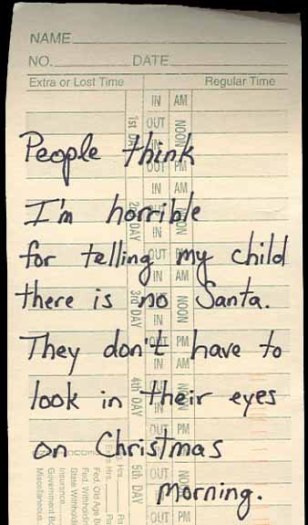 NAME
NO. DATE
Extra or Lost Time Regular Time
IN AM
1st DAY OUT NOON
People think
IN
OUT PM
IN AM
I'm horrible
2nd DAY OUT NOON
for telling my child
OUT PM
IN AM
there is no Santa.
3rd DAY NOON
IN
They don't have to
OUT PM
IN AM
look in their eyes
4th DAY OUT NOON
IN
OUT PM
on Christmas
IN AM
5th DAY OUT NOON
Morning.
IN
OUT PM
Hrs.
Fed. Old Age
Fed. Withhold
State Withhold
Insurance
Government B
Miscellaneous